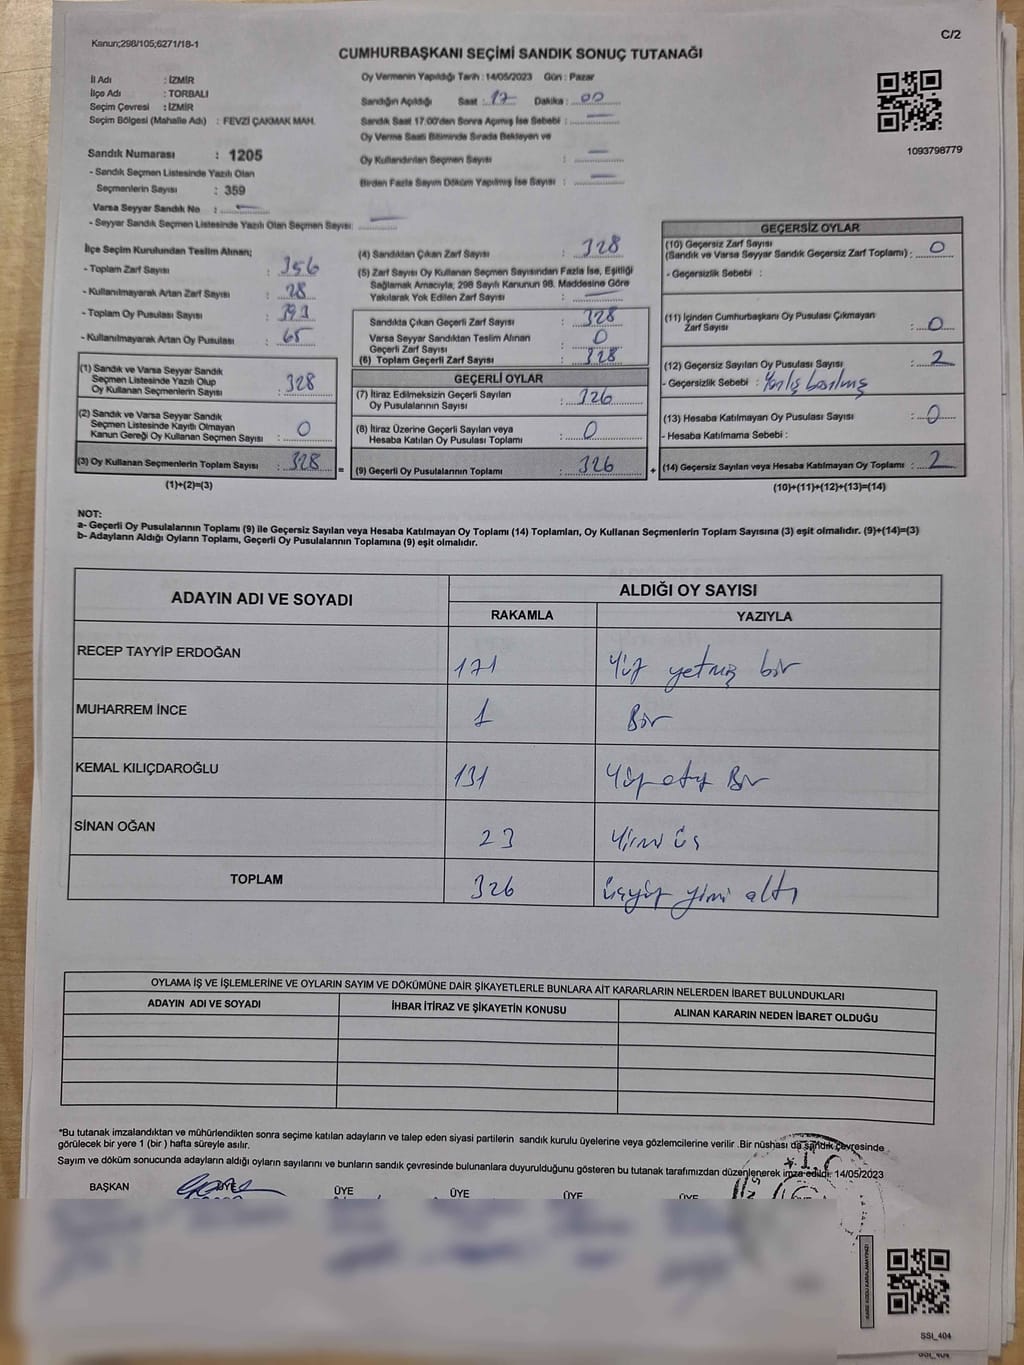 Kanun;298/105;6271/18-1
C/2
CUMHURBAŞKANI SEÇİMİ SANDIK SONUÇ TUTANAĞI
İl Adı : İZMİR
İlçe Adı : TORBALI
Seçim Çevresi : İZMİR
Seçim Bölgesi (Mahalle Adı) : FEVZİ ÇAKMAK MAH.
Sandık Numarası : 1205
- Sandık Seçmen Listesinde Yazılı Olan
Seçmenlerin Sayısı : 359
Varsa Seyyar Sandık No :
- Seyyar Sandık Seçmen Listesinde Yazılı Olan Seçmen Sayısı:
Oy Vermenin Yapıldığı Tarih : 14/05/2023 Gün : Pazar
Sandığın Açıldığı Saat : 17 Dakika : 00
Sandık Saat 17.00'den Sonra Açımış İse Sebebi :
Oy Verme Saati Bitiminde Sırada Bekleyen ve
Oy Kullandırılan Seçmen Sayısı :
Birden Fazla Sayım Döküm Yapılmış İse Sayısı :
1093798779
İlçe Seçim Kurulundan Teslim Alınan;
- Toplam Zarf Sayısı : 356
- Kullanılmayarak Artan Zarf Sayısı : 28
- Toplam Oy Pusulası Sayısı : 393
- Kullanılmayarak Artan Oy Pusulası : 65
(1) Sandık ve Varsa Seyyar Sandık
Seçmen Listesinde Yazılı Olup
Oy Kullanan Seçmenlerin Sayısı : 328
(2) Sandık ve Varsa Seyyar Sandık
Seçmen Listesinde Kayıtlı Olmayan
Kanun Gereği Oy Kullanan Seçmen Sayısı : 0
(3) Oy Kullanan Seçmenlerin Toplam Sayısı : 328
(1)+(2)=(3)
(4) Sandıktan Çıkan Zarf Sayısı : 328
(5) Zarf Sayısı Oy Kullanan Seçmen Sayısından Fazla İse, Eşitliği
Sağlamak Amacıyla; 298 Sayılı Kanunun 98. Maddesine Göre
Yakılarak Yok Edilen Zarf Sayısı :
Sandıkta Çıkan Geçerli Zarf Sayısı : 328
Varsa Seyyar Sandıktan Teslim Alınan
Geçerli Zarf Sayısı : 0
(6) Toplam Geçerli Zarf Sayısı : 328
GEÇERLİ OYLAR
(7) İtiraz Edilmeksizin Geçerli Sayılan
Oy Pusulalarının Sayısı : 326
(8) İtiraz Üzerine Geçerli Sayılan veya
Hesaba Katılan Oy Pusulası Toplamı : 0
= (9) Geçerli Oy Pusulalarının Toplamı : 326 +
GEÇERSİZ OYLAR
(10) Geçersiz Zarf Sayısı
(Sandık ve Varsa Seyyar Sandık Geçersiz Zarf Toplamı) : 0
- Geçersizlik Sebebi :
(11) İçinden Cumhurbaşkanı Oy Pusulası Çıkmayan
Zarf Sayısı : 0
(12) Geçersiz Sayılan Oy Pusulası Sayısı : 2
- Geçersizlik Sebebi : Yanlış basılmış
(13) Hesaba Katılmayan Oy Pusulası Sayısı : 0
- Hesaba Katılmama Sebebi :
(14) Geçersiz Sayılan veya Hesaba Katılmayan Oy Toplamı : 2
(10)+(11)+(12)+(13)=(14)
NOT:
a- Geçerli Oy Pusulalarının Toplamı (9) ile Geçersiz Sayılan veya Hesaba Katılmayan Oy Toplamı (14) Toplamları, Oy Kullanan Seçmenlerin Toplam Sayısına (3) eşit olmalıdır. (9)+(14)=(3)
b- Adayların Aldığı Oyların Toplamı, Geçerli Oy Pusulalarının Toplamına (9) eşit olmalıdır.
ADAYIN ADI VE SOYADI
ALDIĞI OY SAYISI
RAKAMLA YAZIYLA
RECEP TAYYİP ERDOĞAN 171 Yüz yetmiş bir
MUHARREM İNCE 1 Bir
KEMAL KILIÇDAROĞLU 131 Bir
SİNAN OĞAN 23 Yirmi üç
TOPLAM 326 üçyüz yirmi altı
OYLAMA İŞ VE İŞLEMLERİNE VE OYLARIN SAYIM VE DÖKÜMÜNE DAİR ŞİKAYETLERLE BUNLARA AİT KARARLARIN NELERDEN İBARET BULUNDUKLARI
ADAYIN ADI VE SOYADI İHBAR İTİRAZ VE ŞİKAYETİN KONUSU ALINAN KARARIN NEDEN İBARET OLDUĞU
*Bu tutanak imzalandıktan ve mühürlendikten sonra seçime katılan adayların ve talep eden siyasi partilerin sandık kurulu üyelerine veya gözlemcilerine verilir .Bir nüshası da sandık çevresinde
görülecek bir yere 1 (bir ) hafta süreyle asılır.
Sayım ve döküm sonucunda adayların aldığı oyların sayılarını ve bunların sandık çevresinde bulunanlara duyurulduğunu gösteren bu tutanak tarafımızdan düzenlenerek imza edildi. 14/05/2023
BAŞKAN ÜYE ÜYE ÜYE ÜYE
SSI_404